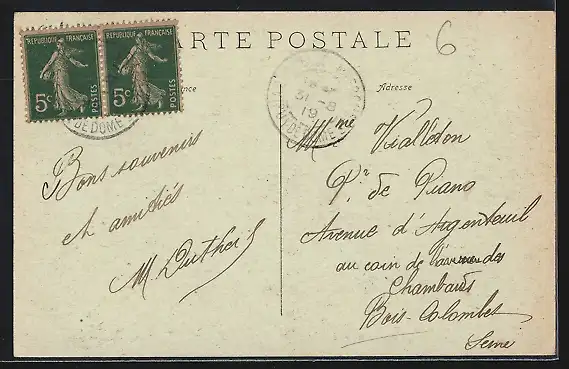 CARTE POSTALE
6
REPUBLIQUE FRANÇAISE
5c POSTES
REPUBLIQUE FRANÇAISE
5c POSTES
DE DOME
31 -8
19
DE DOME
Adresse
Bons souvenirs
et amitiés
M Dutheil
Mme Vialledon
Pr de Piano
Avenue d'Argenteuil
au coin de l'avenue des
Chambards
Bois-Colombes
Seine